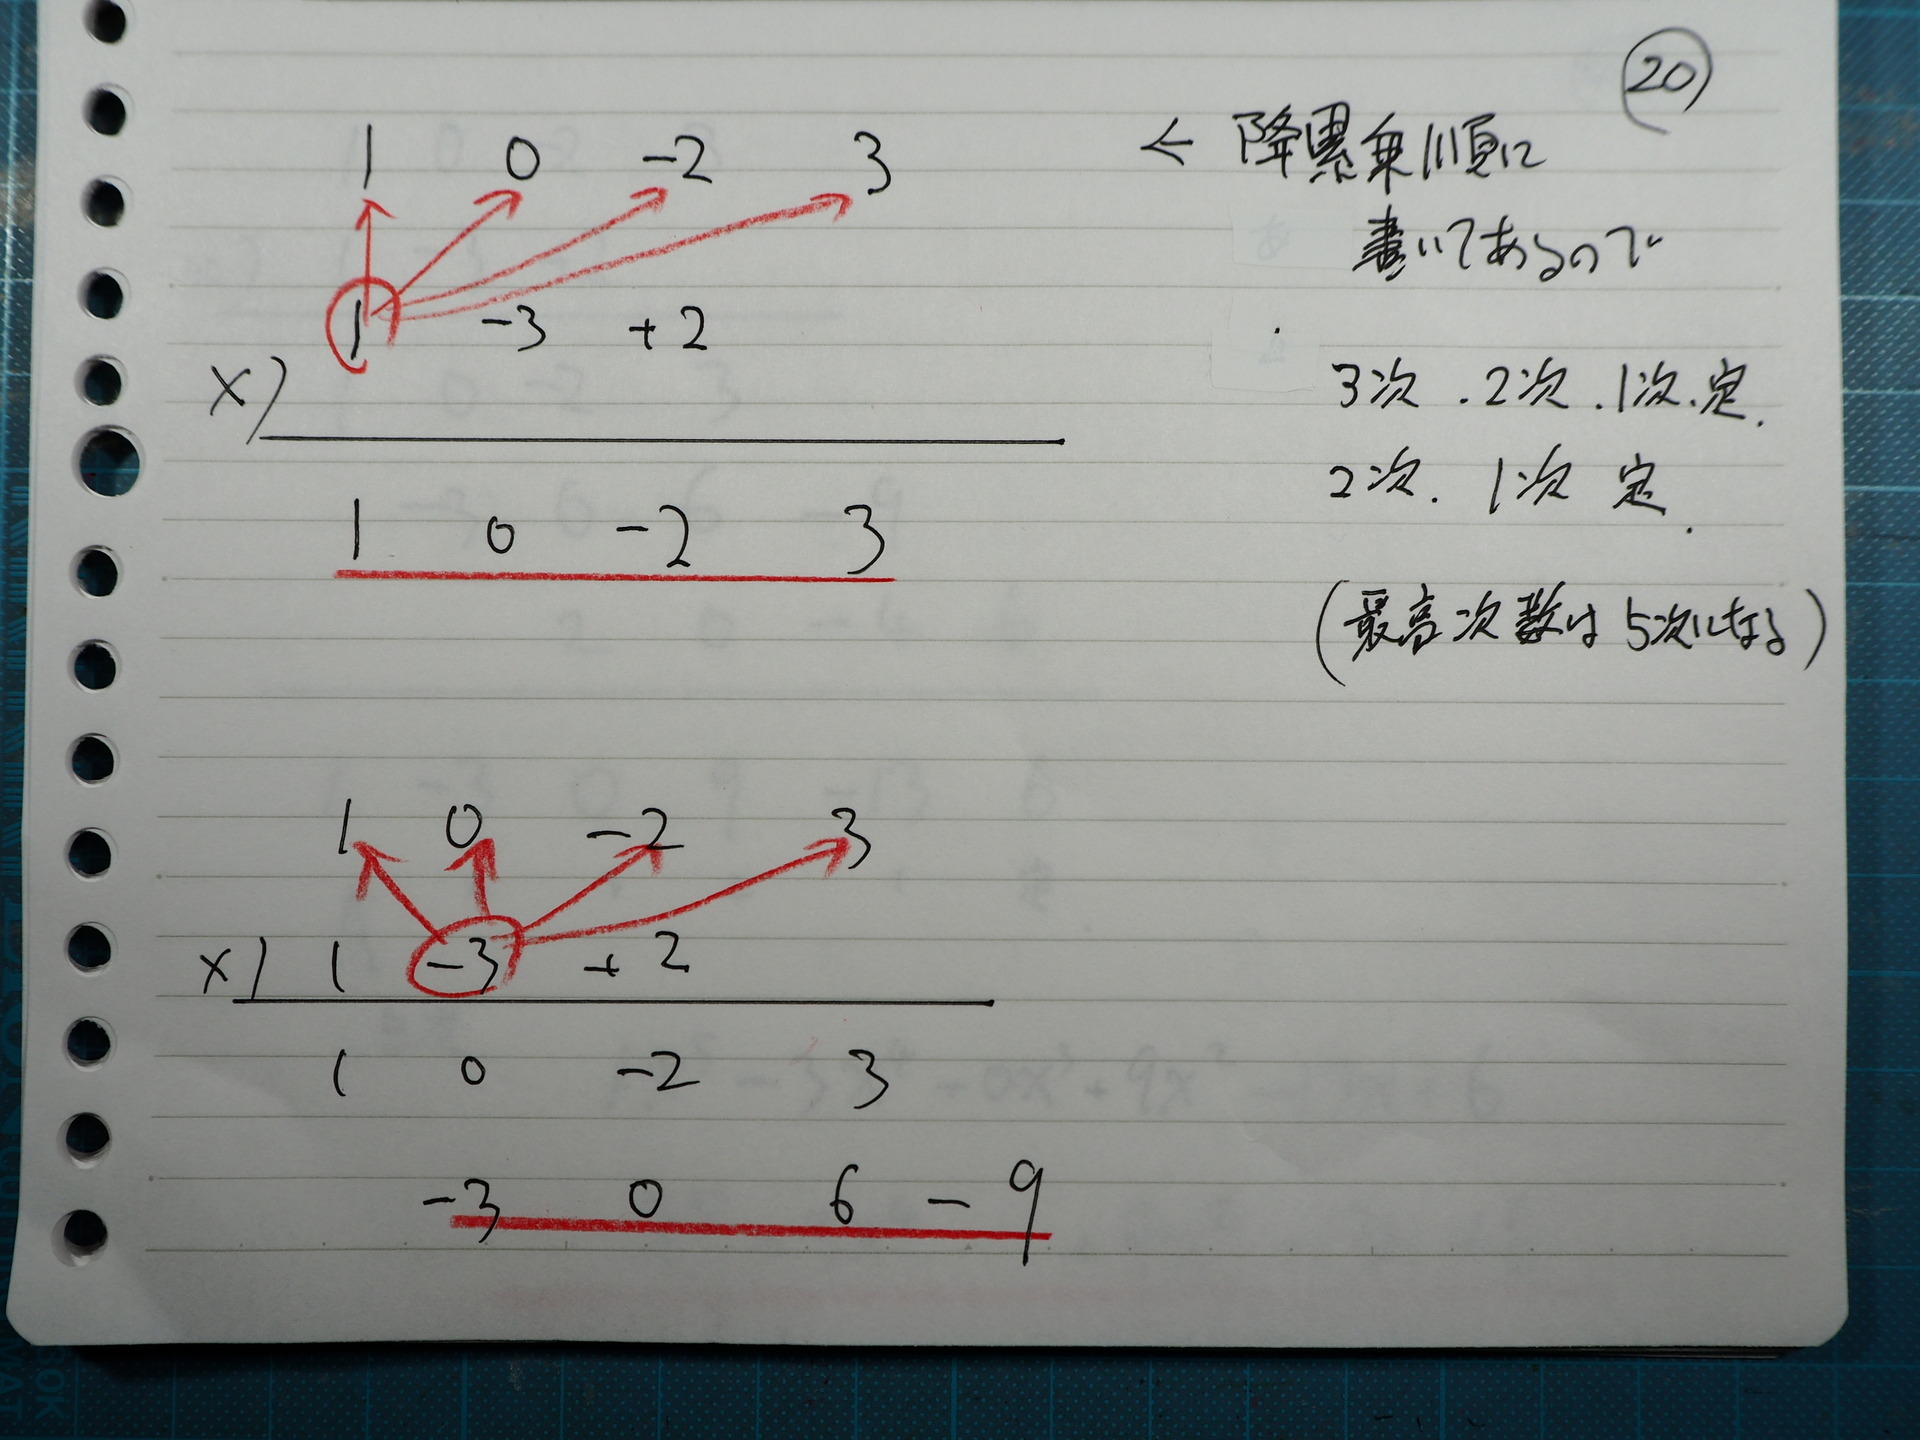 20
1 0 -2 3
← 降累乗順に
書いてあるので
1 -3 +2
×)
3次.2次.1次.定.
2次. 1次 定.
1 0 -2 3
(最高次数は5次になる)
1 0 -2 3
×) 1 -3 +2
1 0 -2 3
-3 0 6 -9